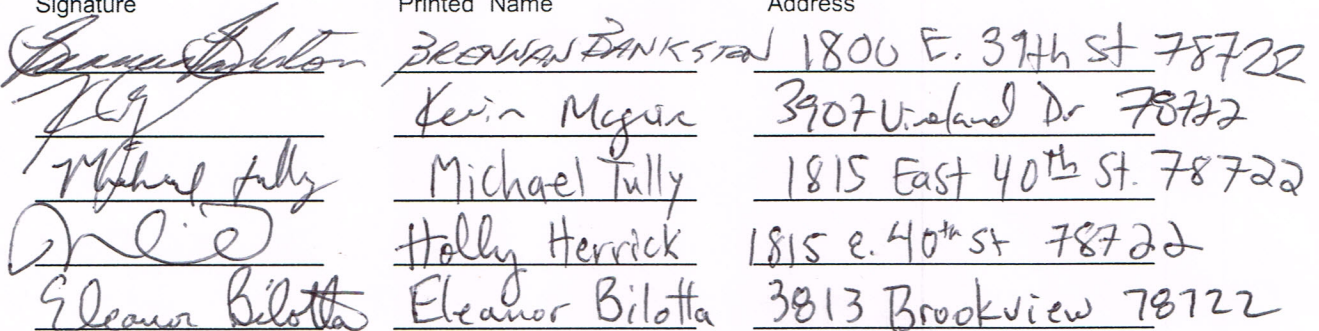 Signature Printed Name Address
BRENNAN BANKSTON 1800 E. 39th St 78722
Kevin Maguire 3907 Vineland Dr 78722
Michael Tully Michael Tully 1815 East 40th St. 78722
Holly Herrick 1815 E. 40th St 78722
Eleanor Bilotta Eleanor Bilotta 3813 Brookview 78722